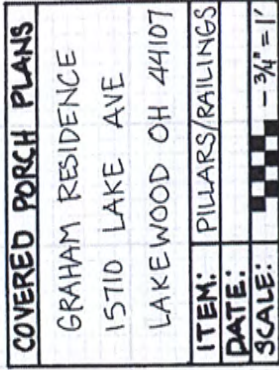 COVERED PORCH PLANS
GRAHAM RESIDENCE
15710 LAKE AVE
LAKEWOOD OH 44107
ITEM: PILLARS/RAILINGS
DATE:
SCALE: - 3/4" = 1'